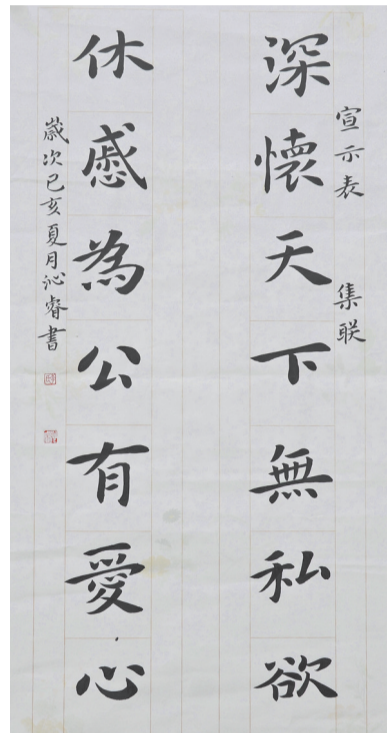 宣示表 集联
深懷天下無私欲
休慼為公有愛心
歲次己亥夏月沁睿書